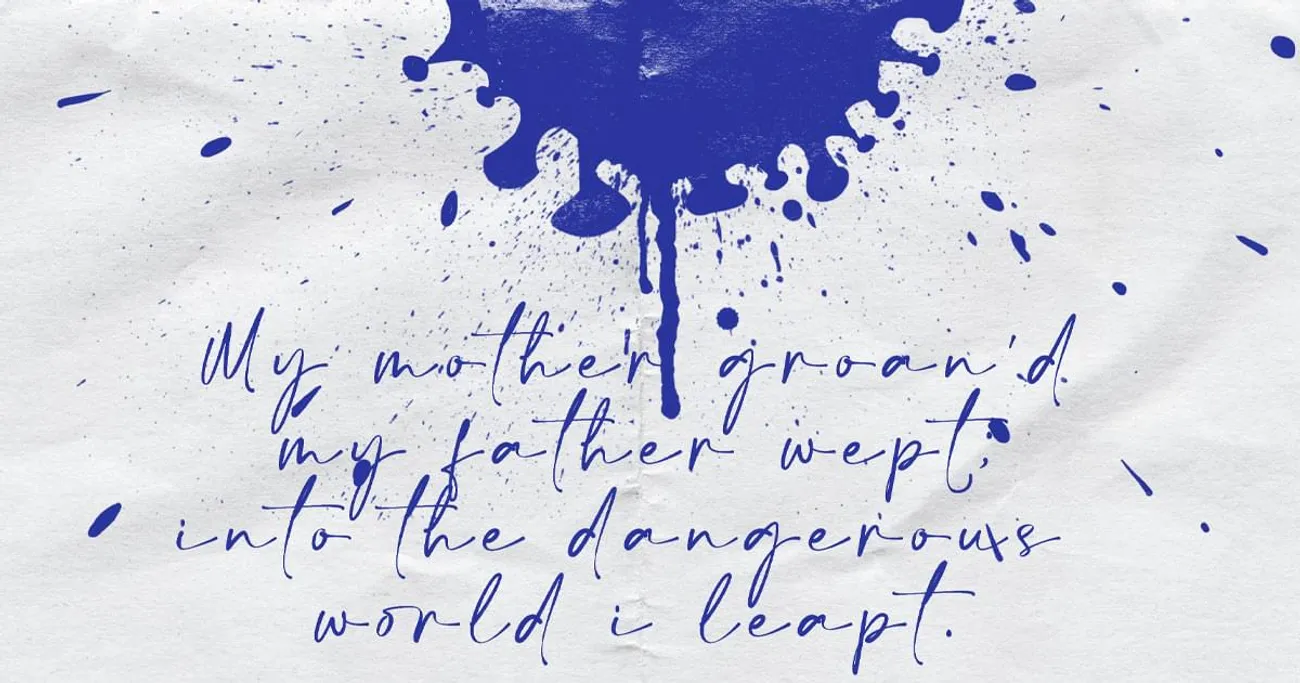 My mother groan'd
my father wept,
into the dangerous
world i leapt.